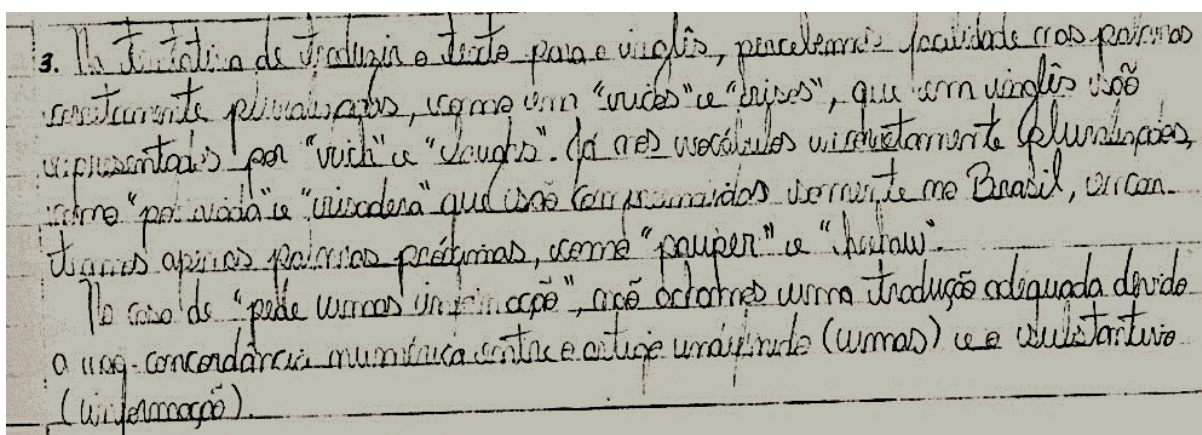 3. Na tentativa de traduzir o texto para o inglês, percebemos facilidade nas palavras
corretamente pluralizadas, como em "ricos" e "risos", que em inglês são
representados por "rich" e "laughs". Já nos vocábulos incorretamente pluralizados,
como "pobraiada" e "risadera" que são compreendidos somente no Brasil, encon-
tramos apenas palavras próximas, como "pauper" e "heehaw".
No caso de "pede umas informação", não achamos uma tradução adequada devido
a não-concordância numérica entre o artigo indefinido (umas) e o substantivo
(informação).